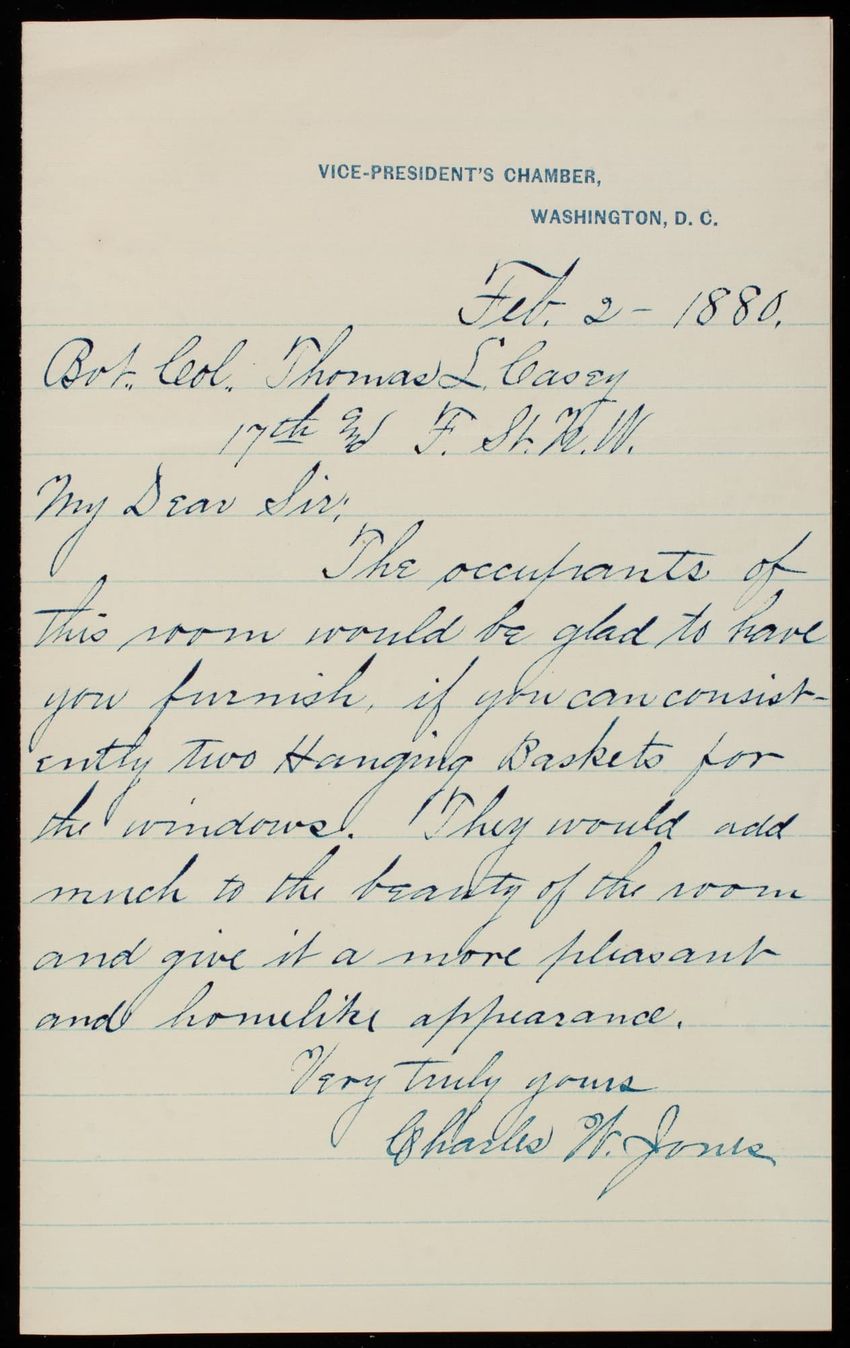 VICE-PRESIDENT'S CHAMBER,
WASHINGTON, D. C.
Feb. 2 - 1880.
Bvt. Col. Thomas L. Casey
17th and F. St. N. W.
My Dear Sir:
The occupants of
this room would be glad to have
you furnish, if you can consist-
ently two Hanging Baskets for
the windows. They would add
much to the beauty of the room
and give it a more pleasant
and homelike appearance.
Very truly yours
Charles W. Jones